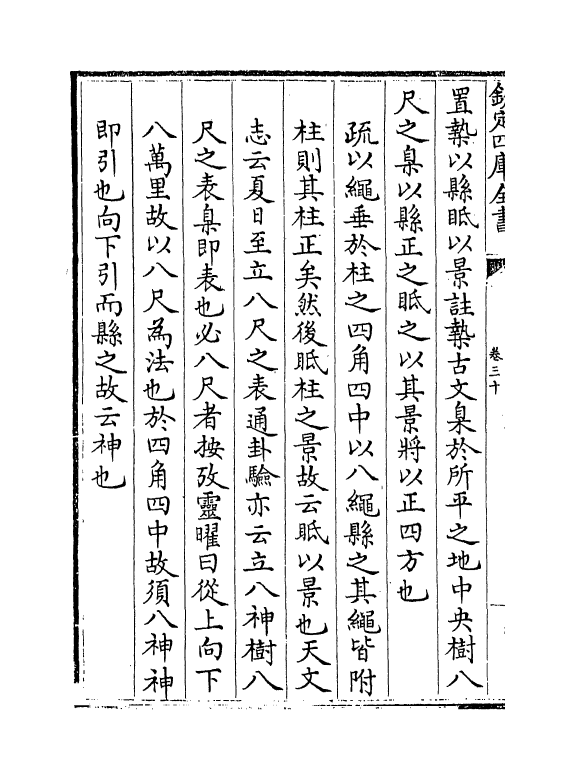 欽定四庫全書
卷三十
置槷以縣眡以景註槷古文臬於所平之地中央樹八
尺之臬以縣正之眡之以其景將以正四方也
疏以繩垂於柱之四角四中以八繩縣之其繩皆附
柱則其柱正矣然後眡柱之景故云眡以景也天文
志云夏日至立八尺之表通卦驗亦云立八神樹八
尺之表臬即表也必八尺者按攷靈曜曰從上向下
八萬里故以八尺為法也於四角四中故須八神神
即引也向下引而縣之故云神也